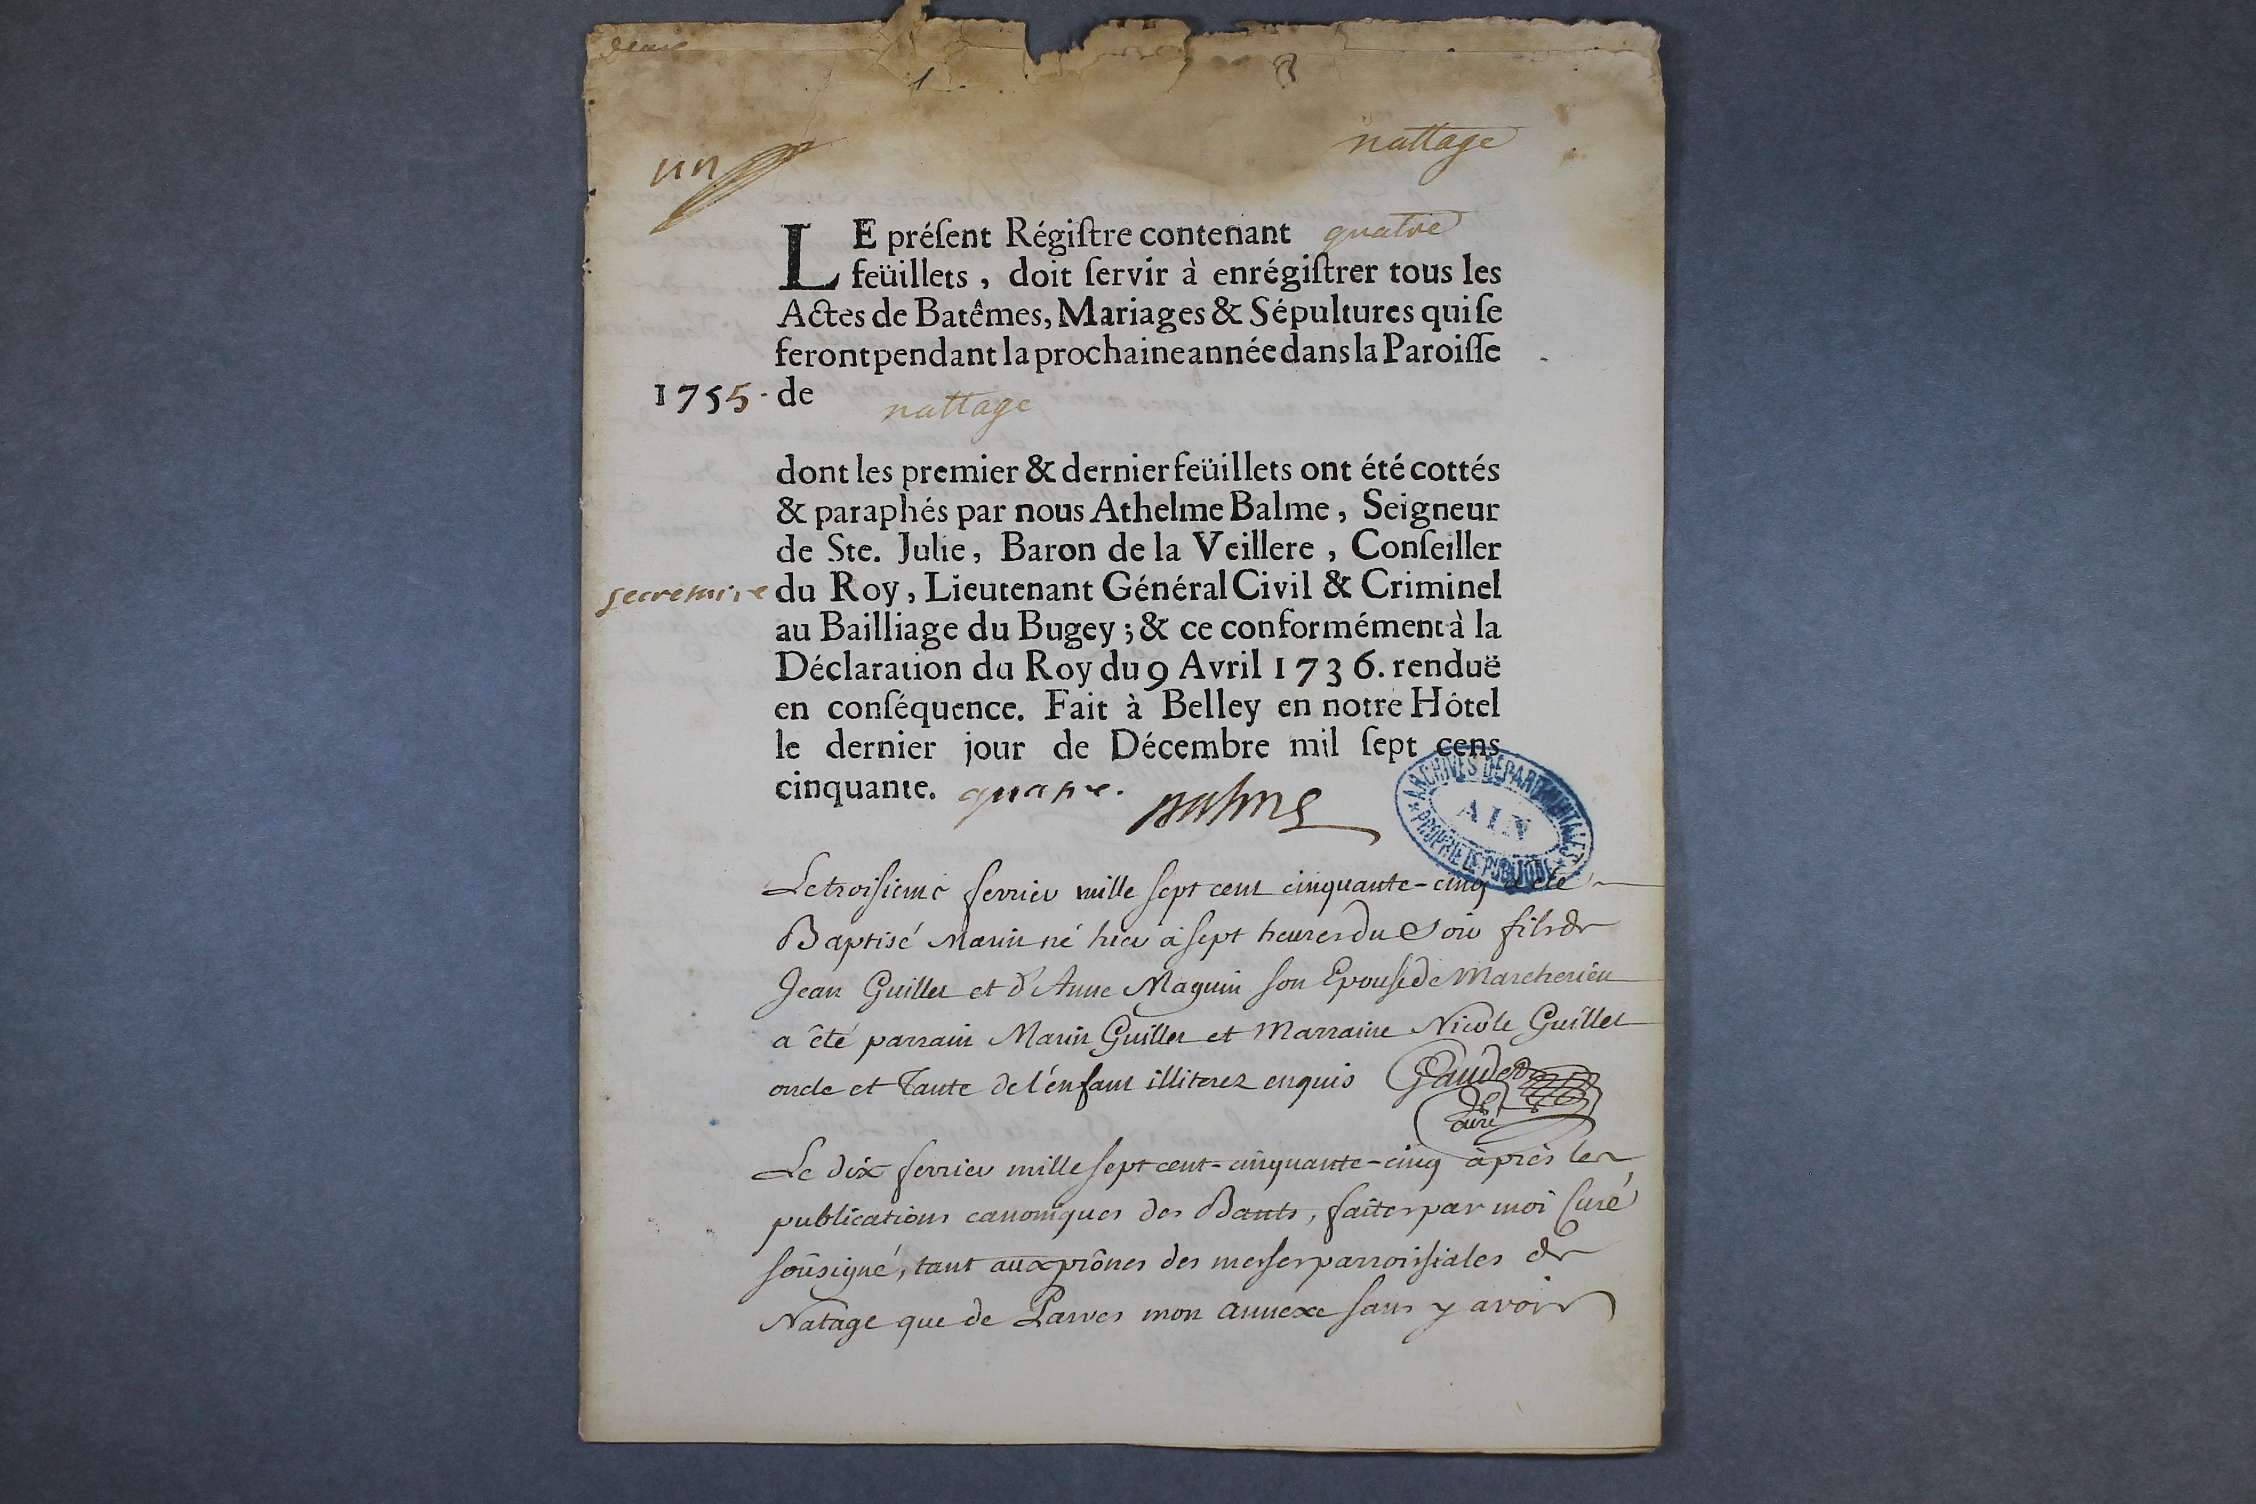 1
nattage
un
LE préſent Régiſtre contenant quatre
feüillets, doit ſervir à enrégiſtrer tous les
Actes de Batêmes, Mariages & Sépultures qui ſe
feront pendant la prochaine année dans la Paroiſſe
1755. de nattage
dont les premier & dernier feüillets ont été cottés
& paraphés par nous Athelme Balme, Seigneur
de Ste. Julie, Baron de la Veillere, Conſeiller
secretaire du Roy, Lieutenant Général Civil & Criminel
au Bailliage du Bugey; & ce conformément à la
Déclaration du Roy du 9 Avril 1736. renduë
en conſéquence. Fait à Belley en notre Hôtel
le dernier jour de Décembre mil ſept cens
cinquante. quatre. Balme
ARCHIVES DEPARTEMENTALES
AIN
PROPRIETE PUBLIQUE
Le troisieme fevrier mille sept cent cinquante-cinq a été
Baptisé Marin né hier à sept heures du Soir fils de
Jean Guillet et d'Anne Maguin son Epouse de Marcherieu
a êté parrain Marin Guillet et Marraine Nicole Guillet
oncle et Tante de l'énfant illiterez enquis Gaudet
curé
Le dix fevrier mille sept cent-cinquante-cinq àprès les
publications canoniques des Bants, faites par moi Curé
soûsigné, tant aux prônes des messes parroissiales de
Natage que de Parves mon annexe sans y avoir